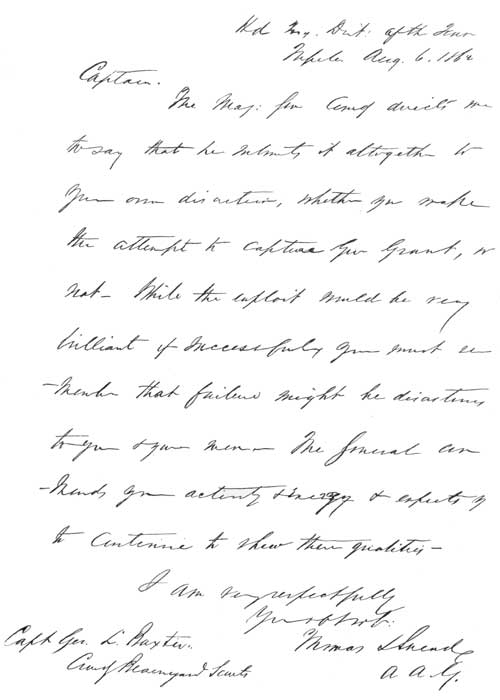 Hd Qrs. Dist: of the Tenn
Tupelo Aug. 6. 1862
Captain.
The Maj: Gen Comdg directs me
to say that he submits it altogether to
your own discretion, whether you make
the attempt to capture Gen Grant, or
not— While the exploit would be very
brilliant if successful, you must re
-member that failure might be disastrous
to you & your men— The General com
-mends your activity & energy & expects you
to continue to shew these qualities—
I am very respectfully
Yr obt svt.
Thomas L Snead
A. A. G.
Capt Geo. L. Baxter.
Comdg Beauregard Scouts